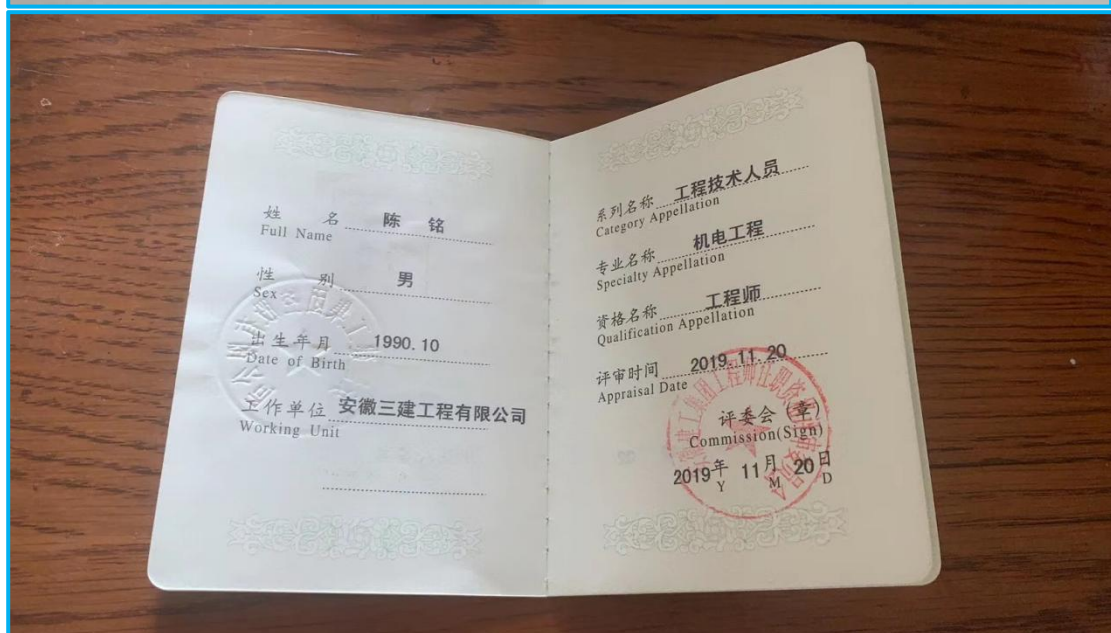 姓 名 陈 铭
Full Name
性 别 男
Sex
出生年月 1990.10
Date of Birth
工作单位 安徽三建工程有限公司
Working Unit
系列名称 工程技术人员
Category Appellation
专业名称 机电工程
Specialty Appellation
资格名称 工程师
Qualification Appellation
评审时间 2019.11.20
Appraisal Date
评委会(章)
Commission(Sign)
2019年 11月 20日
Y M D